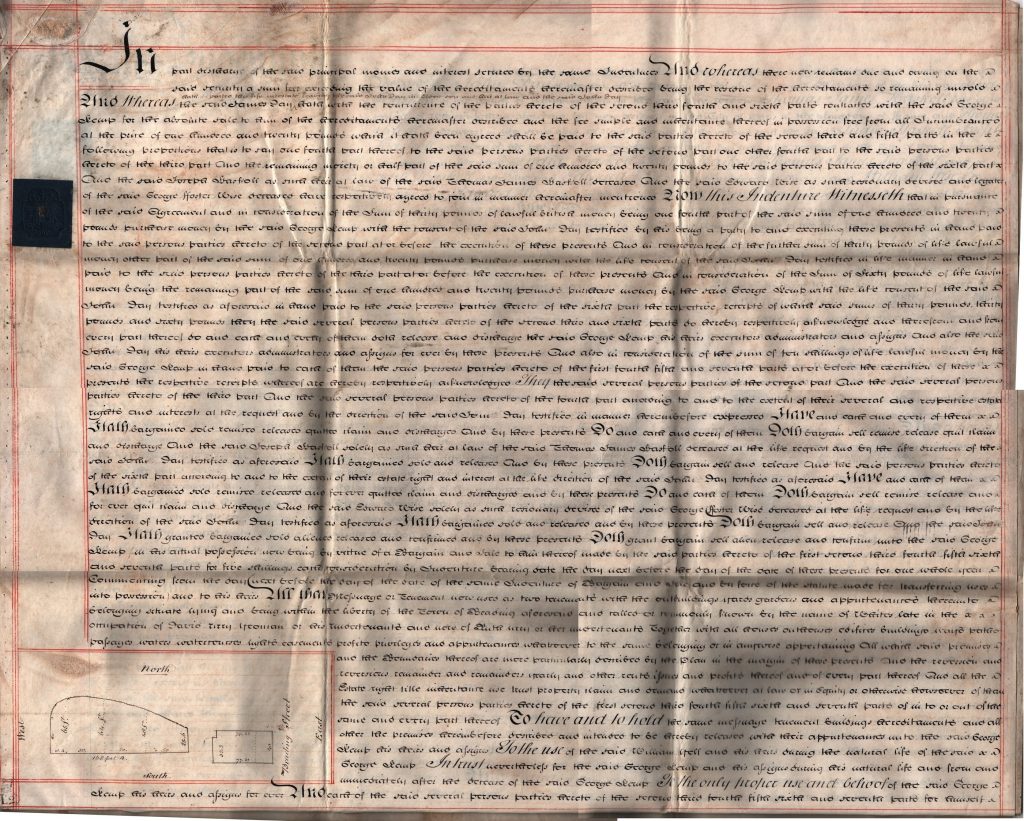 In
part discharge of the said principal monies and interest secured by the same Indentures And whereas there now remains due and owing on the
said security a sum far exceeding the value of the hereditaments hereinafter described being the residue of the hereditaments so remaining unsold
And Whereas the said James Day hath with the concurrence of the parties hereto of the second third fourth and sixth parts contracted with the said George
Kemp for the absolute sale to him of the hereditaments hereinafter described and the fee simple and inheritance thereof in possession free from all Incumbrances
at the price of one hundred and twenty pounds which it hath been agreed shall be paid to the said parties hereto of the second third and fifth parts in the
following proportions that is to say one fourth part thereof to the said persons parties hereto of the second part one other fourth part to the said persons parties
hereto of the third part And the remaining moiety or half part of the said sum of one hundred and twenty pounds to the said persons parties hereto of the sixth part
And the said Joseph as such heir at law of the said Thomas James deceased And the said Edward Wise as such residuary devisee and legatee
of the said George Foster Wise deceased have respectively agreed to join in manner hereinafter mentioned Now this Indenture Witnesseth that in pursuance
of the said Agreement and in consideration of the Sum of thirty pounds of lawful british money being one fourth part of the said sum of one hundred and twenty
pounds purchase money by the said George Kemp with the consent of the said John Day testified by his being a party to and executing these presents in hand paid
to the said persons parties hereto of the second part at or before the execution of these presents And in consideration of the further sum of thirty pounds of like lawful
money other part of the said sum of one hundred and twenty pounds purchase money with the like consent of the said John Day testified in like manner in hand
paid to the said persons parties hereto of the third part at or before the execution of these presents And in consideration of the Sum of Sixty pounds of like lawful
money being the remaining part of the said sum of one hundred and twenty pounds purchase money by the said George Kemp with the like consent of the said
John Day testified as aforesaid in hand paid to the said persons parties hereto of the sixth part the respective receipts of which said sums of thirty pounds thirty
pounds and sixty pounds they the said several persons parties hereto of the second third and sixth parts do hereby respectively acknowledge and therefrom and from
every part thereof do and each and every of them doth release and discharge the said George Kemp his heirs executors administrators and assigns And also the said
John Day his heirs executors administrators and assigns for ever by these presents And also in consideration of the sum of ten shillings of like lawful money by the
said George Kemp in hand paid to each of them the said persons parties hereto of the first fourth fifth and seventh parts at or before the execution of these
presents the respective receipts whereof are hereby respectively acknowledged They the said several persons parties of the second part And the said several persons
parties hereto of the third part And the said several persons parties hereto of the fourth part according to and to the extent of their several and respective estates
rights and interests at the request and by the direction of the said John Day testified in manner hereinbefore expressed Have and each and every of them
Hath bargained sold remised released quitted claim and discharged And by these presents Do and each and every of them Doth bargain sell remise release quit claim
and discharge And the said Joseph solely as such heir at law of the said Thomas James deceased at the like request and by the like direction of the
said John Day testified as aforesaid Hath bargained sold and released And by these presents Doth bargain sell and release And the said persons parties hereto
of the sixth part according to and to the extent of their estate right and interest at the like direction of the said John Day testified as aforesaid Have and each of them
Hath bargained sold remised released and for ever quitted claim and discharged and by these presents Do and each of them Doth bargain sell remise release and
for ever quit claim and discharge And the said Edward Wise solely as such residuary devisee of the said George Foster Wise deceased at the like request and by the like
direction of the said John Day testified as aforesaid Hath bargained sold and released and by these presents Doth bargain sell and release And the said John
Day Hath granted bargained sold aliened released and confirmed and by these presents Doth grant bargain sell alien release and confirm unto the said George
Kemp in his actual possession now being by virtue of a Bargain and Sale to him thereof made by the said parties hereto of the first second third fourth fifth sixth
and seventh parts for five shillings each consideration by Indenture bearing date the day next before the day of the date of these presents for one whole year
Commencing from the day next before the day of the date of the same Indenture of Bargain and Sale and by force of the statute made for transferring uses
into possession and to his heirs All that Messuage or Tenement now used as two tenements with the outbuildings yards gardens and appurtenances thereunto
belonging situate lying and being within the liberty of the Town of Reading aforesaid and called or commonly known by the name of late in the
occupation of David Yeoman or his undertenants and now of or her undertenants Together with all houses outhouses edifices buildings ways paths
passages waters watercourses lights easements profits privileges and appurtenances whatsoever to the same belonging or in anywise appertaining All which said premises
and the Boundaries thereof are more particularly described by the Plan in the margin of these presents And the reversion and
reversions remainder and remainders yearly and other rents issues and profits thereof and of every part thereof And all the
Estate right title inheritance use trust property claim and demand whatsoever at law or in Equity or otherwise howsoever of them
the said several persons parties hereto of the first second third fourth fifth sixth and seventh parts of in to or out of the
same and every part thereof To have and to hold the same messuage tenement buildings hereditaments and all
other the premises hereinbefore described and intended to be hereby released with their appurtenances unto the said George
Kemp his heirs and assigns To the use of the said William and his heirs during the natural life of the said
George Kemp In trust nevertheless for the said George Kemp and his assigns during his natural life and from and
immediately after the decease of the said George Kemp To the only proper use and behoof of the said George
Kemp his heirs and assigns for ever And each of the said several persons parties hereto of the second third fourth fifth sixth and seventh parts for himself
North
West
East
South